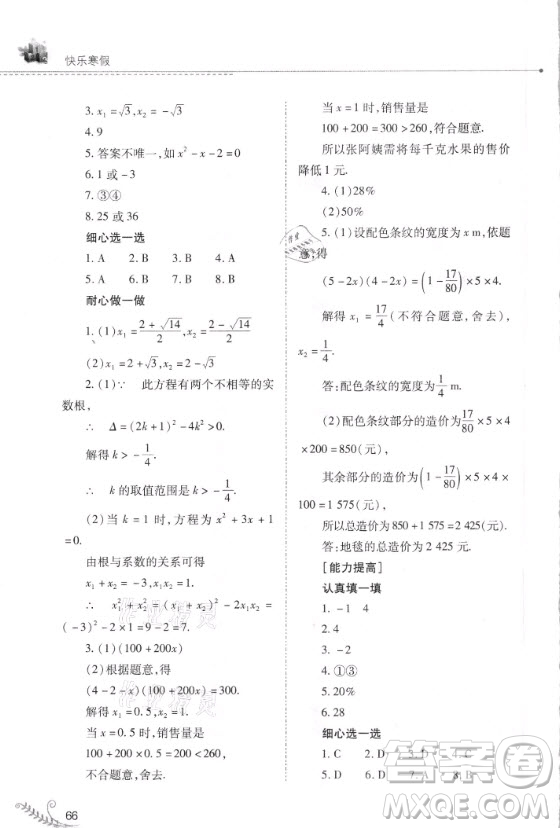 快乐寒假
3. x₁=√3, x₂=-√3
4. 9
5. 答案不唯一,如 x²-x-2=0
6. 1 或 -3
7. ③④
8. 25 或 36
细心选一选
1. A 2. B 3. B 4. A
5. A 6. B 7. B 8. B
耐心做一做
1. (1) x₁=(2+√14)/2, x₂=(2-√14)/2
(2) x₁=2+√3, x₂=2-√3
2. (1)∵ 此方程有两个不相等的实
数根,
∴ Δ=(2k+1)²-4k²>0.
解得 k>-1/4.
∴ k 的取值范围是 k>-1/4.
(2)当 k=1 时,方程为 x²+3x+1
=0.
由根与系数的关系可得
x₁+x₂=-3, x₁x₂=1.
∴ x₁²+x₂²=(x₁+x₂)²-2x₁x₂=
(-3)²-2×1=9-2=7.
3. (1)(100+200x)
(2)根据题意,得
(4-2-x)(100+200x)=300.
解得 x₁=0.5, x₂=1.
当 x=0.5 时,销售量是
100+200×0.5=200<260,
不合题意,舍去.
当 x=1 时,销售量是
100+200=300>260,符合题意.
所以张阿姨需将每千克水果的售价
降低 1 元.
4. (1)28%
(2)50%
5. (1)设配色条纹的宽度为 x m,依题
意,得
(5-2x)(4-2x)=(1-17/80)×5×4.
解得 x₁=17/4(不符合题意,舍去),
x₂=1/4.
答:配色条纹的宽度为 1/4 m.
(2)配色条纹部分的造价为 17/80×5×4
×200=850(元),
其余部分的造价为(1-17/80)×5×4×
100=1 575(元),
所以总造价为 850+1 575=2 425(元).
答:地毯的总造价为 2 425 元.
[能力提高]
认真填一填
1. -1 4
2. 4
3. -2
4. ①③
5. 20%
6. 28
细心选一选
1. C 2. D 3. D 4. C
5. D 6. D 7. A 8. B
答案圈
66